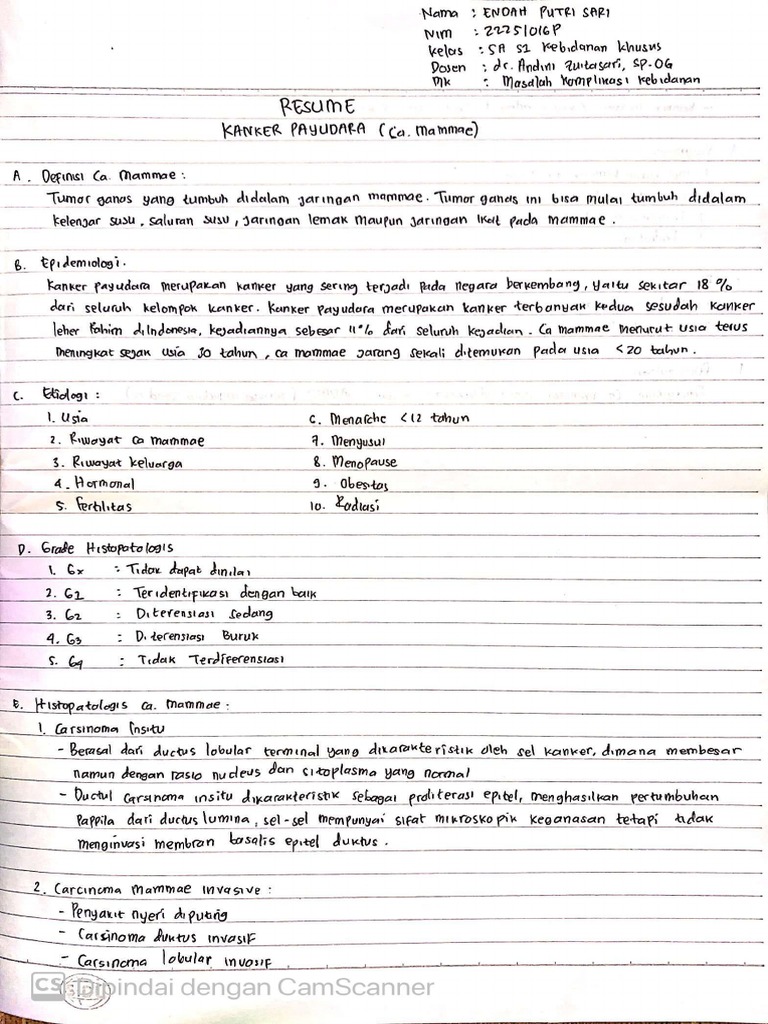 Nama : ENDAH PUTRI SARI
Nim : 22251016P
Kelas : 5A S1 Kebidanan Khusus
Dosen : dr. Andini Zuitasari, SP.OG
Mk : Masalah Komplikasi Kebidanan
RESUME
KANKER PAYUDARA (Ca. Mammae)
A. Definisi Ca. Mammae :
Tumor ganas yang tumbuh didalam jaringan mammae. Tumor ganas ini bisa mulai tumbuh didalam
kelenjar susu, saluran susu, jaringan lemak maupun jaringan ikat pada mammae.
B. Epidemiologi.
Kanker payudara merupakan kanker yang sering terjadi pada negara berkembang, yaitu sekitar 18 %
dari seluruh kelompok kanker. Kanker Payudara merupakan kanker terbanyak kedua sesudah kanker
leher Rahim diIndonesia, kejadiannya sebesar 11% dari seluruh kejadian. Ca mammae menurut usia terus
meningkat sejak usia 30 tahun, ca mammae jarang sekali ditemukan pada usia <20 tahun.
C. Etiologi :
1. Usia
2. Riwayat ca mammae
3. Riwayat keluarga
4. Hormonal
5. Fertilitas
6. Menarche <12 tahun
7. Menyusui
8. Menopause
9. Obesitas
10. Radiasi
D. Grade Histopatologis
1. Gx : Tidak dapat dinilai
2. G1 : Teridentifikasi dengan baik
3. G2 : Diterensiasi Sedang
4. G3 : Diterensiasi Buruk
5. G4 : Tidak Terdiferensiasi
E. Histopatologis ca. mammae :
1. Carsinoma Insitu
- Berasal dari ductus lobular terminal yang dikarakteristik oleh sel kanker, dimana membesar
namun dengan rasio nucleus dan sitoplasma yang normal
- Ductul carsinoma insitu dikarakteristik sebagai proliterasi epitel, menghasilkan pertumbuhan
Pappila dari ductus lumina, sel-sel mempunyai sifat mikroskopik keganasan tetapi tidak
menginvasi membran basalis epitel duktus.
2. Carcinoma mammae invasive :
- Penyakit nyeri diputing
- Carsinoma duktus invasif
- Carsinoma lobular invasif
CS Dipindai dengan CamScanner